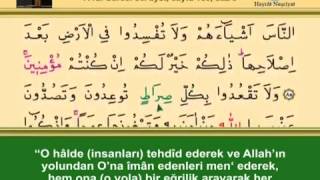 Hayrât Neşriyat
النَّاسَ اَشْيَٓاءَهُمْ وَلَا تُفْسِدُوا فِي الْاَرْضِ بَعْدَ
اِصْلَاحِهَا ذٰلِكُمْ خَيْرٌ لَكُمْ اِنْ كُنْتُمْ مُؤْمِنٖينَ
وَلَا تَقْعُدُوا بِكُلِّ صِرَاطٍ تُوعِدُونَ وَتَصُدُّونَ
“O hâlde (insanları) tehdîd ederek ve Allah’ın
yolundan O’na îmân edenleri men‘ ederek,
hem ona (o yola) bir eğrilik arayarak her